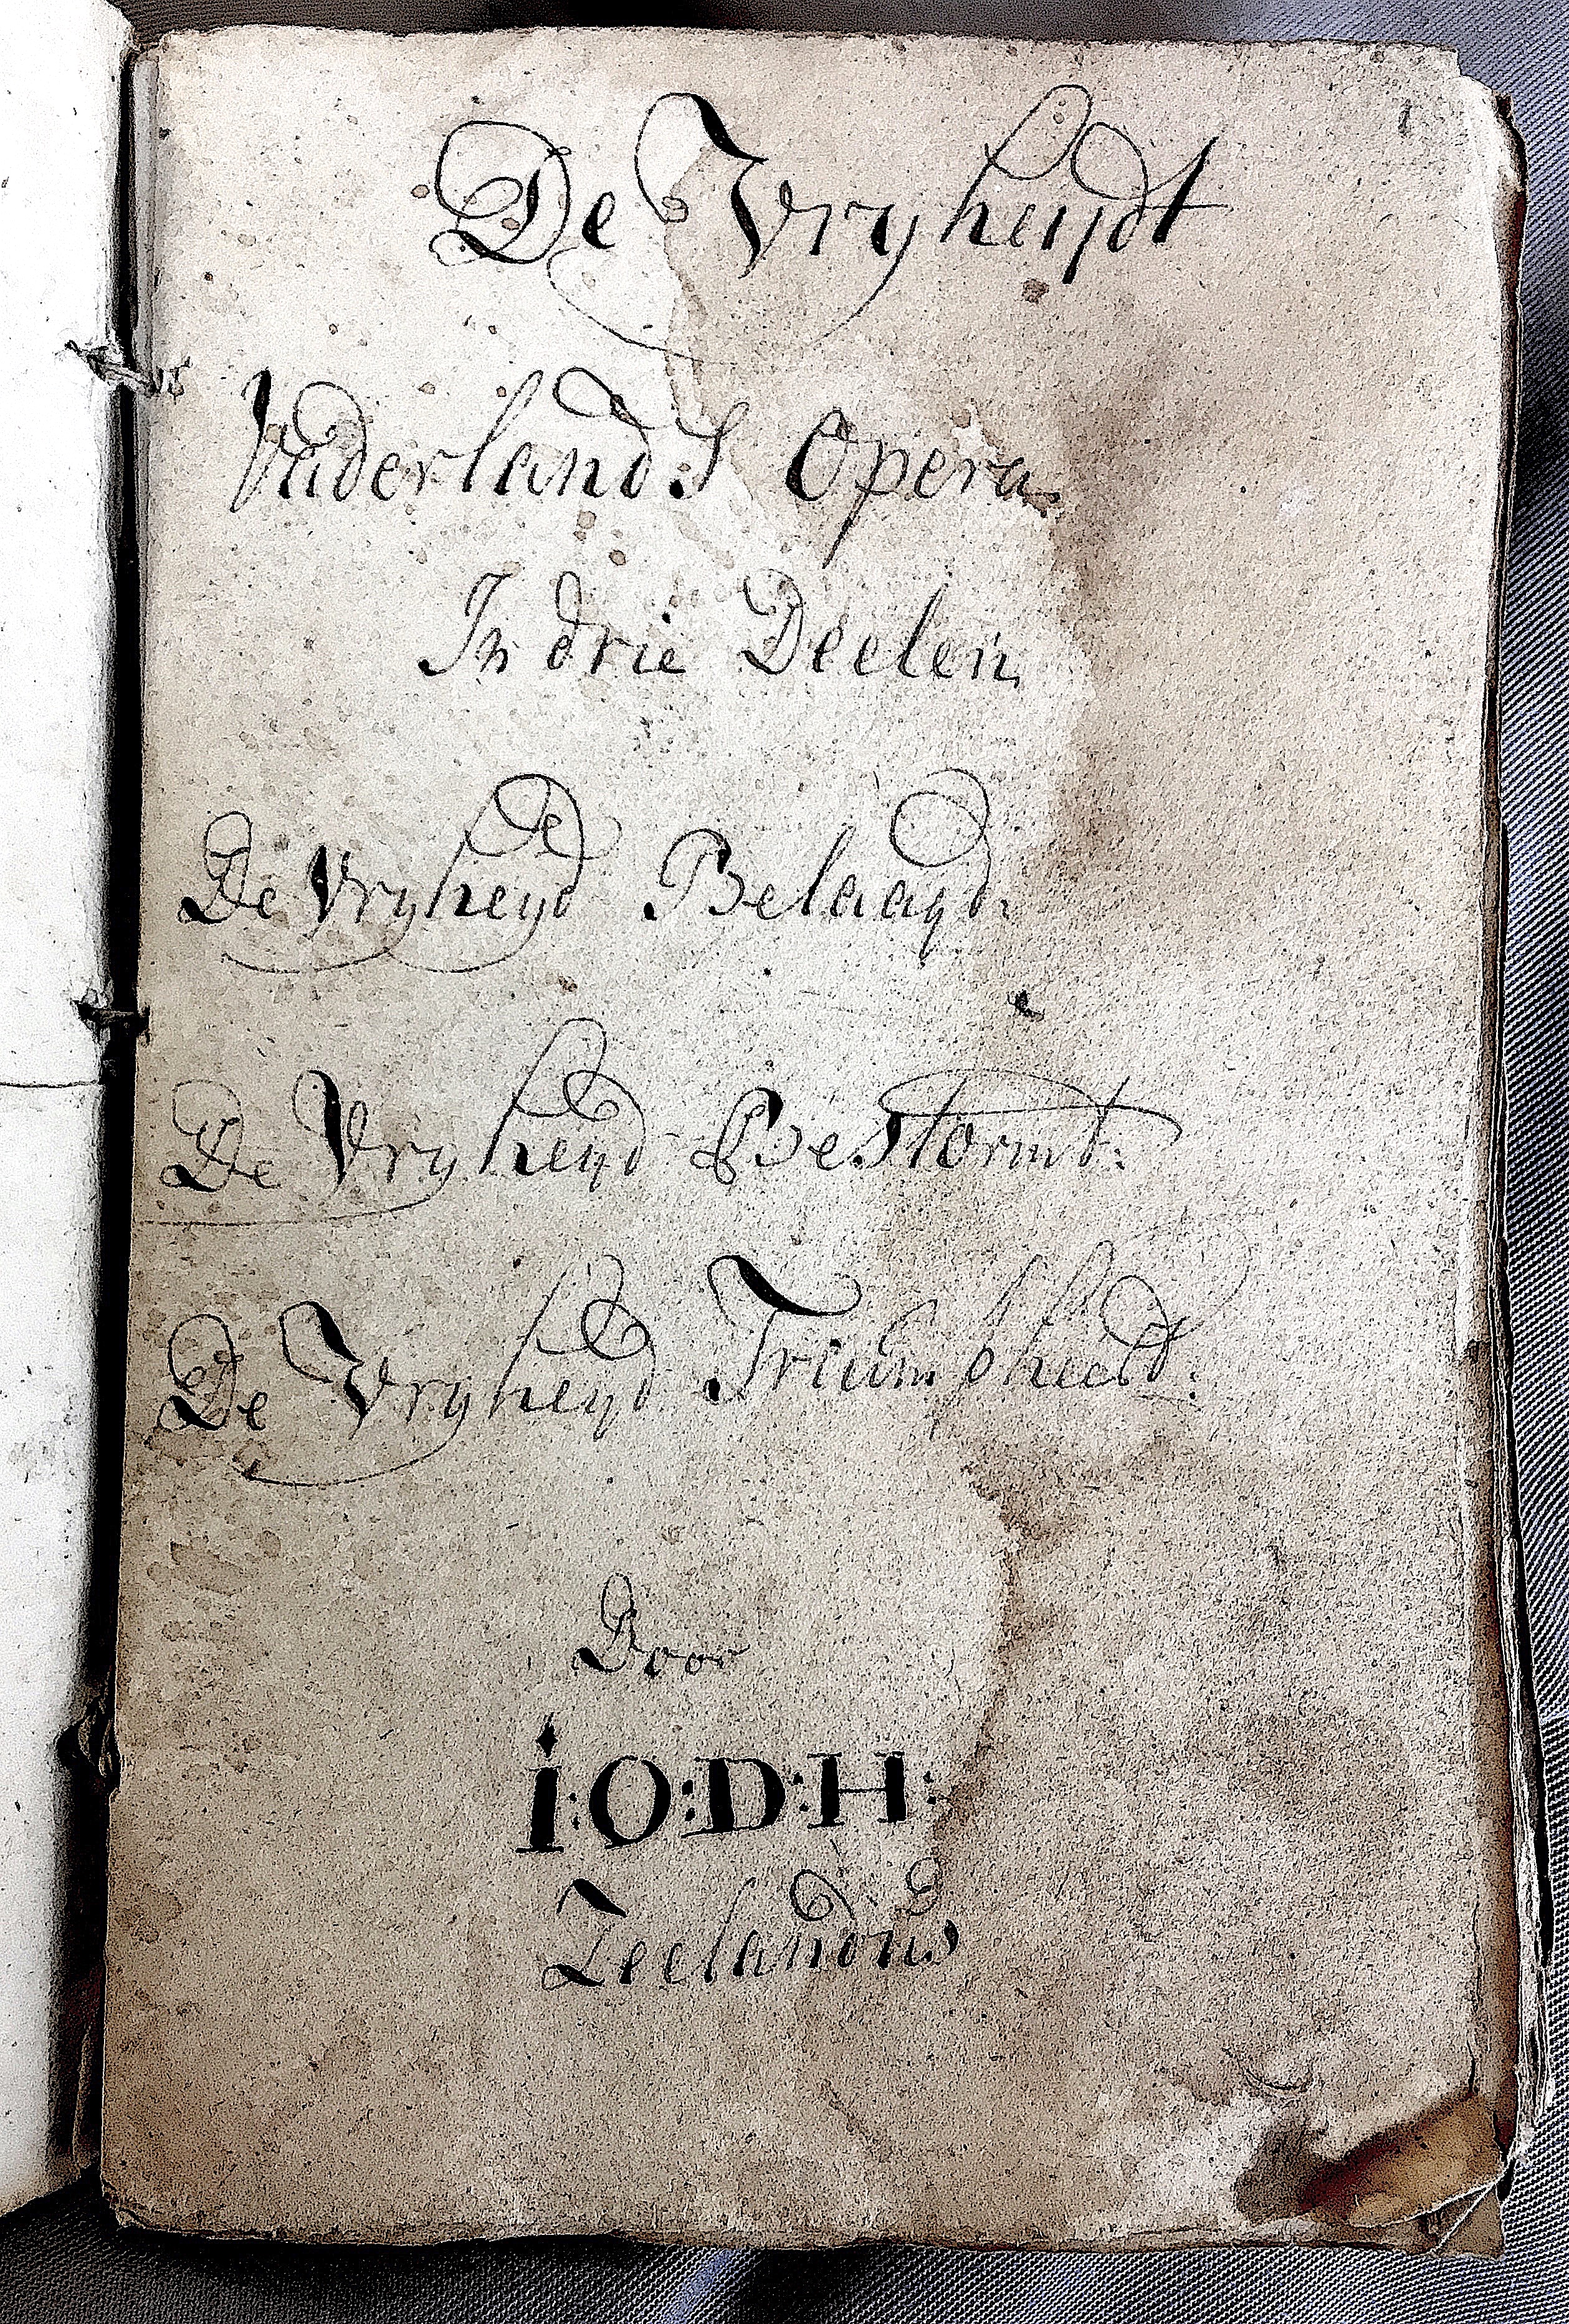 De Vryheijdt
Vaderlands Opera.
In drie Deelen,
De Vryheyd Belaagd:
De Vryheyd Bestormt:
De Vryheyd Triumpheeld:
Door
i:O:D:H: